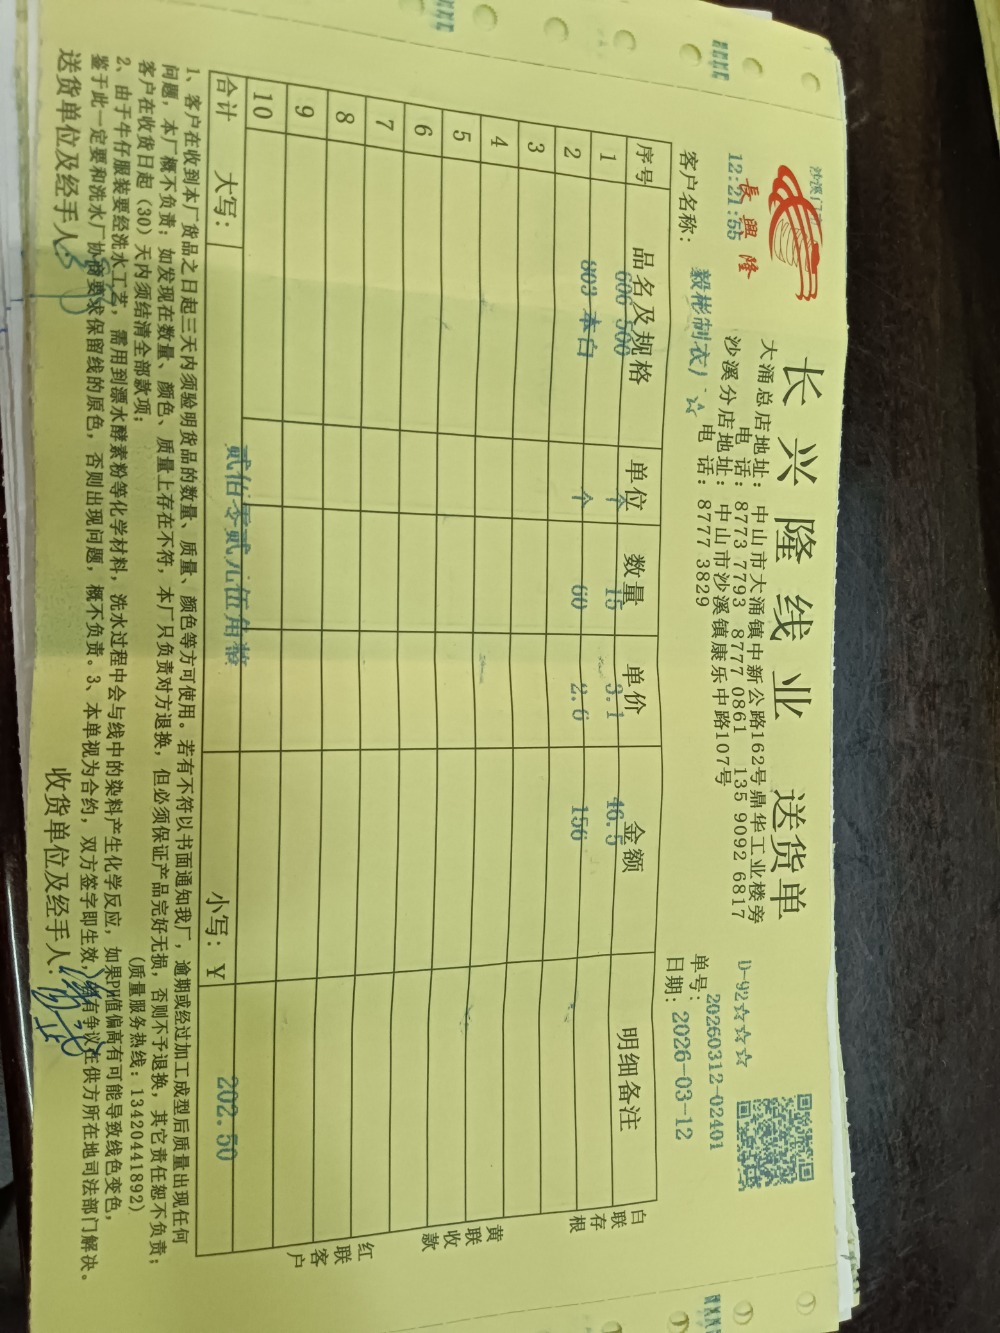 沙溪门
長興隆
12:21:55
长兴隆线业 送货单
大涌总店地址: 中山市大涌镇中新公路162号鼎华工业楼旁
电 话: 8773 7793 8777 0861 135 9092 6817
沙溪分店地址: 中山市沙溪镇康乐中路107号
电 话: 8777 3829
D-92☆☆☆☆
单号: 20260312-02401
客户名称: 毅彬制衣厂.☆
日期: 2026-03-12
序号 品名及规格 单位 数量 单价 金额 明细备注
1 606 500 个 15 3.1 46.5
2 803 本白 个 60 2.6 156
3
4
5
6
7
8
9
10
合计 大写: 贰佰零贰元伍角整 小写: ¥ 202.50
白联存根
黄联收款
红联客户
1、客户在收到本厂货品之日起三天内须验明货品的数量、质量、颜色等方可使用。若有不符以书面通知我厂,逾期或经过加工成型后质量出现任何
问题,本厂概不负责;如发现在数量、颜色、质量上存在不符,本厂只负责对方退换,但必须保证产品完好无损,否则不予退换,其它责任恕不负责;
客户在收货日起(30)天内须结清全部款项; (质量服务热线: 13420441892)
2、由于牛仔服装要经洗水工艺,需用到漂水酵素粉等化学材料,洗水过程中会与线中的染料产生化学反应,如果PH值偏高有可能导致线色变色,
鉴于此一定要和洗水厂协商要求保留线的原色,否则出现问题,概不负责。3、本单视为合约,双方签字即生效,如有争议在供方所在地司法部门解决。
送货单位及经手人: 收货单位及经手人: